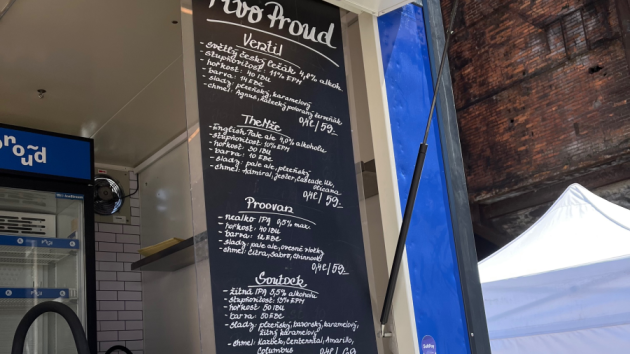 Pivo Proud
Ventil
- světlý český ležák, 4,8% alkoh.
- stupňovitost: 11% EPM
- hořkost: 40 IBU
- barva: 14 EBC
- slady: plzeňský, karamelový
- chmel: Agnus, Žatecký poloraný červeňák
0,4l / 59,-
TheMže
- English Pale ale 4,0% alkoholu
- stupňovitost: 10% EPM
- hořkost: 30 IBU
- barva: 10 EBC
- slady: pale ale, plzeňský
- chmel: Admiral, Jester, Cascade UK,
0,4l / 59,-
Proovan
- nealko IPA 0,5% max.
- hořkost: 40 IBU
- barva: 12 EBC
- slady: pale ale, ovesné vločky
- chmel: Citra, Sabro, Chinook
0,4l / 59,-
Soutok
- žitná IPA 5,5% alkoholu
- stupňovitost: 13% EPM
- hořkost: 50 IBU
- barva: 50 EBC
- slady: plzeňský, bavorský, karamelový,
žitný karamelový
- chmel: Kazbek, Centennial, Amarillo,
Columbus
0,4l
proud